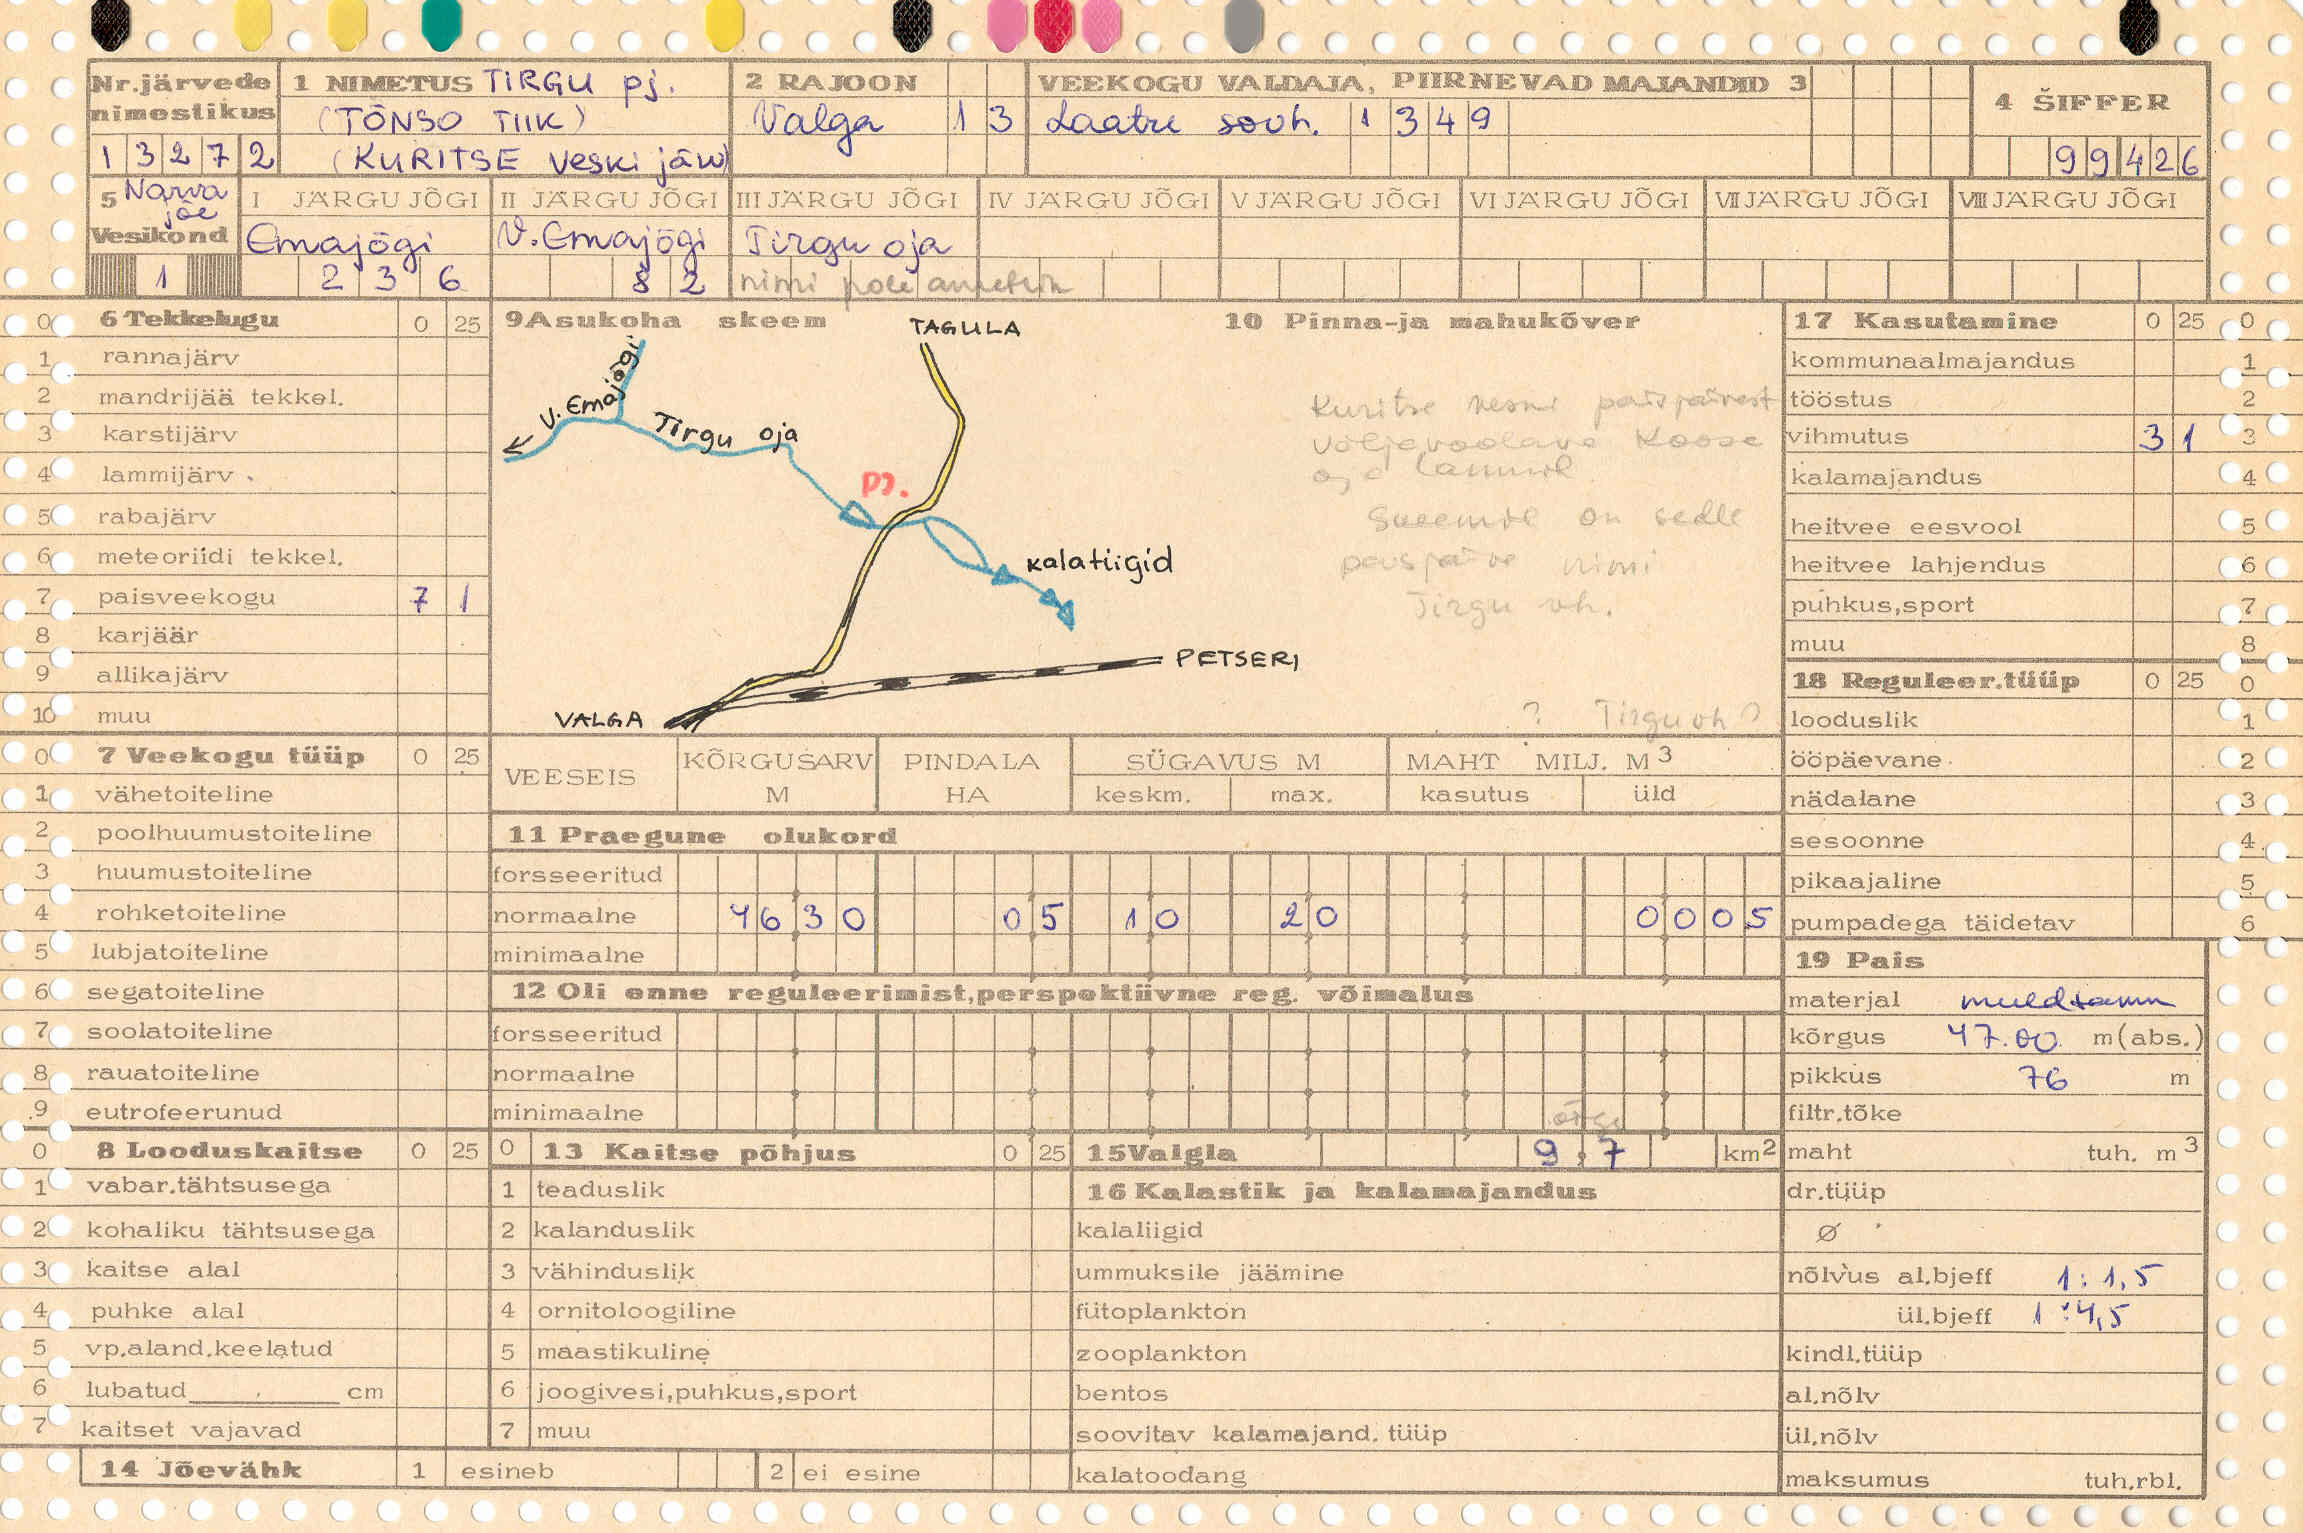 Nr.järvede nimestikus
1 3 2 7 2
1 NIMETUS TIRGU pj.
(TÕNSO TIIK)
(KURITSE veski järv)
2 RAJOON
Valga 1 3
VEEKOGU VALDAJA, PIIRNEVAD MAJANDID 3
Laatre sovh. 1 3 4 9
4 ŠIFFER
9 9 4 2 6
5 Narva jõe
Vesikond
1
I JÄRGU JÕGI
Emajõgi
2 3 6
II JÄRGU JÕGI
V.Emajõgi
8 2
III JÄRGU JÕGI
Tirgu oja
nimi pole
IV JÄRGU JÕGI
V JÄRGU JÕGI
VI JÄRGU JÕGI
VII JÄRGU JÕGI
VIII JÄRGU JÕGI
0 6 Tekkelugu 0 25
1 rannajärv
2 mandrijää tekkel.
3 karstijärv
4 lammijärv
5 rabajärv
6 meteoriidi tekkel.
7 paisveekogu 7 1
8 karjäär
9 allikajärv
10 muu
0 7 Veekogu tüüp 0 25
1 vähetoiteline
2 poolhuumustoiteline
3 huumustoiteline
4 rohketoiteline
5 lubjatoiteline
6 segatoiteline
7 soolatoiteline
8 rauatoiteline
9 eutrofeerunud
0 8 Looduskaitse 0 25
1 vabar.tähtsusega
2 kohaliku tähtsusega
3 kaitse alal
4 puhke alal
5 vp.aland.keelatud
6 lubatud cm
7 kaitset vajavad
14 Jõevähk 1 esineb 2 ei esine
9 Asukoha skeem
TAGULA
V. Emajõgi
Tirgu oja
pj.
kalatiigid
PETSERI
VALGA
10 Pinna-ja mahukõver
Kuritse veski paisjärvest
väljavoolava Koose
oja
Skeemil on selle
paisjärve nimi
Tirgu vh.
? Tirgu vh ?
VEESEIS
KÕRGUSARV M
PINDALA HA
SÜGAVUS M
keskm. max.
MAHT MILJ. M3
kasutus üld
11 Praegune olukord
forsseeritud
normaalne 4 6 3 0 0 5 1 0 2 0 0 0 0 5
minimaalne
12 Oli enne reguleerimist,perspektiivne reg. võimalus
forsseeritud
normaalne
minimaalne
0 13 Kaitse põhjus 0 25
1 teaduslik
2 kalanduslik
3 vähinduslik
4 ornitoloogiline
5 maastikuline
6 joogivesi,puhkus,sport
7 muu
15 Valgla 9,7 km2
16 Kalastik ja kalamajandus
kalaliigid
ummuksile jäämine
fütoplankton
zooplankton
bentos
soovitav kalamajand. tüüp
kalatoodang
17 Kasutamine 0 25 0
kommunaalmajandus 1
tööstus 2
vihmutus 3 1 3
kalamajandus 4
heitvee eesvool 5
heitvee lahjendus 6
puhkus,sport 7
muu 8
18 Reguleer.tüüp 0 25 0
looduslik 1
ööpäevane 2
nädalane 3
sesoonne 4
pikaajaline 5
pumpadega täidetav 6
19 Pais
materjal muldtamm
kõrgus 47.00 m(abs.)
pikkus 76 m
filtr.tõke
maht tuh. m3
dr.tüüp
Ø
nõlvus al.bjeff 1:1,5
ül.bjeff 1:4,5
kindl.tüüp
al.nõlv
ül.nõlv
maksumus tuh.rbl.